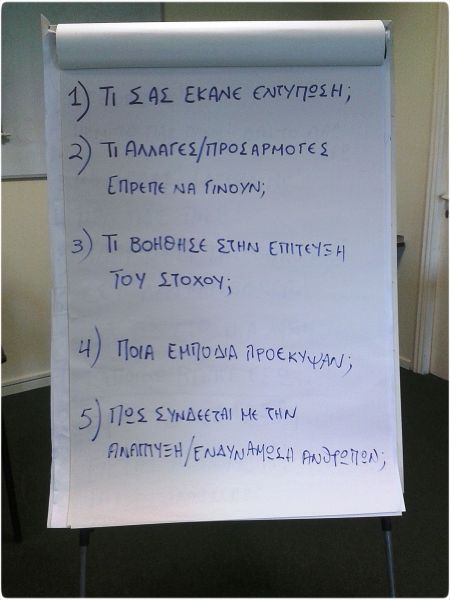 1) ΤΙ ΣΑΣ ΕΚΑΝΕ ΕΝΤΥΠΩΣΗ;
2) ΤΙ ΑΛΛΑΓΕΣ/ΠΡΟΣΑΡΜΟΓΕΣ
ΕΠΡΕΠΕ ΝΑ ΓΙΝΟΥΝ;
3) ΤΙ ΒΟΗΘΗΣΕ ΣΤΗΝ ΕΠΙΤΕΥΞΗ
ΤΟΥ ΣΤΟΧΟΥ;
4) ΠΟΙΑ ΕΜΠΟΔΙΑ ΠΡΟΕΚΥΨΑΝ;
5) ΠΩΣ ΣΥΝΔΕΕΤΑΙ ΜΕ ΤΗΝ
ΑΝΑΠΤΥΞΗ/ΕΝΔΥΝΑΜΩΣΗ ΑΝΘΡΩΠΩΝ;